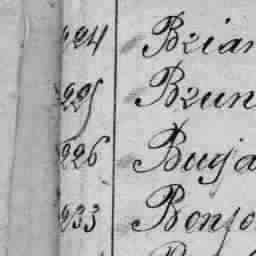 224 Brian
225 Brun
226 Buja
233 Bonfo